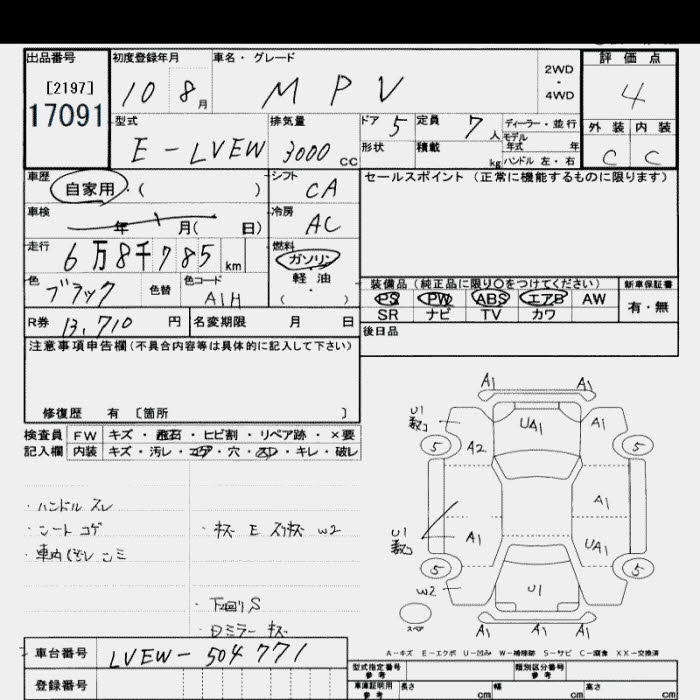 出品番号 初度登録年月 車名・グレード 評価点
[2197] 10 8月 MPV 2WD・4WD 4
17091 型式 排気量 ドア 5 定員 7人 ディーラー・並行 外装 内装
E-LVEW 3000cc 形状 積載 kg モデル年式 年 C C
ハンドル 左・右
車歴 自家用・( ) シフト CA セールスポイント(正常に機能するものに限ります)
車検 年 月( 日) 冷房 AC
走行 6万8千785km 燃料 ガソリン
軽油
・
( )
色 ブラック 色替 色コード A1H 装備品(純正品に限り〇をつけてください) 新車保証書
PS PW ABS エアB AW 有・無
R券 13,710円 名変期限 月 日 SR ナビ TV カワ
後日品
注意事項申告欄(不具合内容等は具体的に記入して下さい)
修復歴 有 〔箇所 〕
検査員 FW キズ・飛石・ヒビ割・リペア跡・×要
記入欄 内装 キズ・汚レ・コゲ・穴・スレ・キレ・破レ
・ハンドル スレ
・シート コゲ
・キズ E スリキズ W2
・下回り S
A1 A1
U1 UA1 A1
5 A2 5
A1
U1 A1 UA1
5 5
W2 U1
スペア A1 A1
A-キズ E-エクボ U-凹み W-補修跡 S-サビ C-腐食 XX-交換済
車台番号 LVEW-504771
登録番号
型式指定番号 参考 類別区分番号 参考
車庫証明用 参考 長さ cm 幅 cm 高さ cm